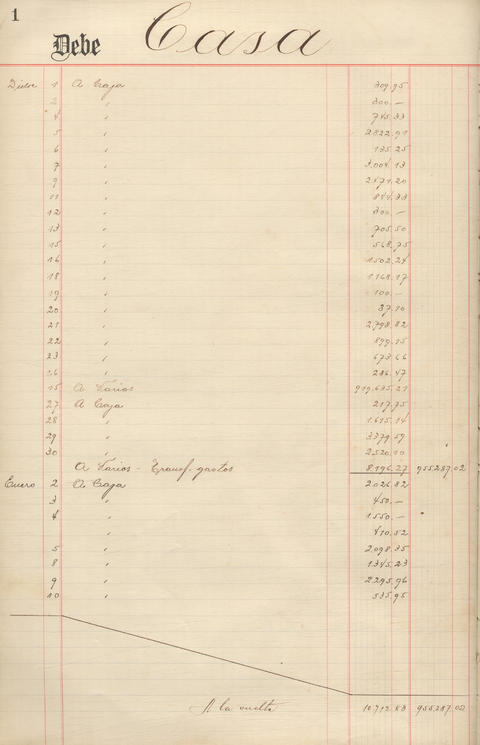 1
Debe Casa
Dicbre 1 A Caja 309.95
2 " 300.—
4 " 745.33
5 " 2.822.91
6 " 135.25
7 " 3.004.13
9 " 2.471.20
11 " 844.33
12 " 300.—
13 " 705.50
15 " 568.75
16 " 1.502.24
18 " 1.168.17
19 " 100.—
20 " 37.10
21 " 2.798.82
22 " 899.15
23 " 673.66
26 " 286.47
15 A Varios 919.635.21
27 A Caja 217.75
28 " 1.615.14
29 " 3379.59
30 " 2.520.10
A Varios - Transf. gastos 8.196.27 955.287.02
Enero 2 A Caja 2.026.82
3 " 450.—
4 " 1.550.—
" 410.52
5 " 2.098.35
8 " 1.345.23
9 " 2.295.96
10 " 535.95
A la vuelta 10.712.83 955.287.02